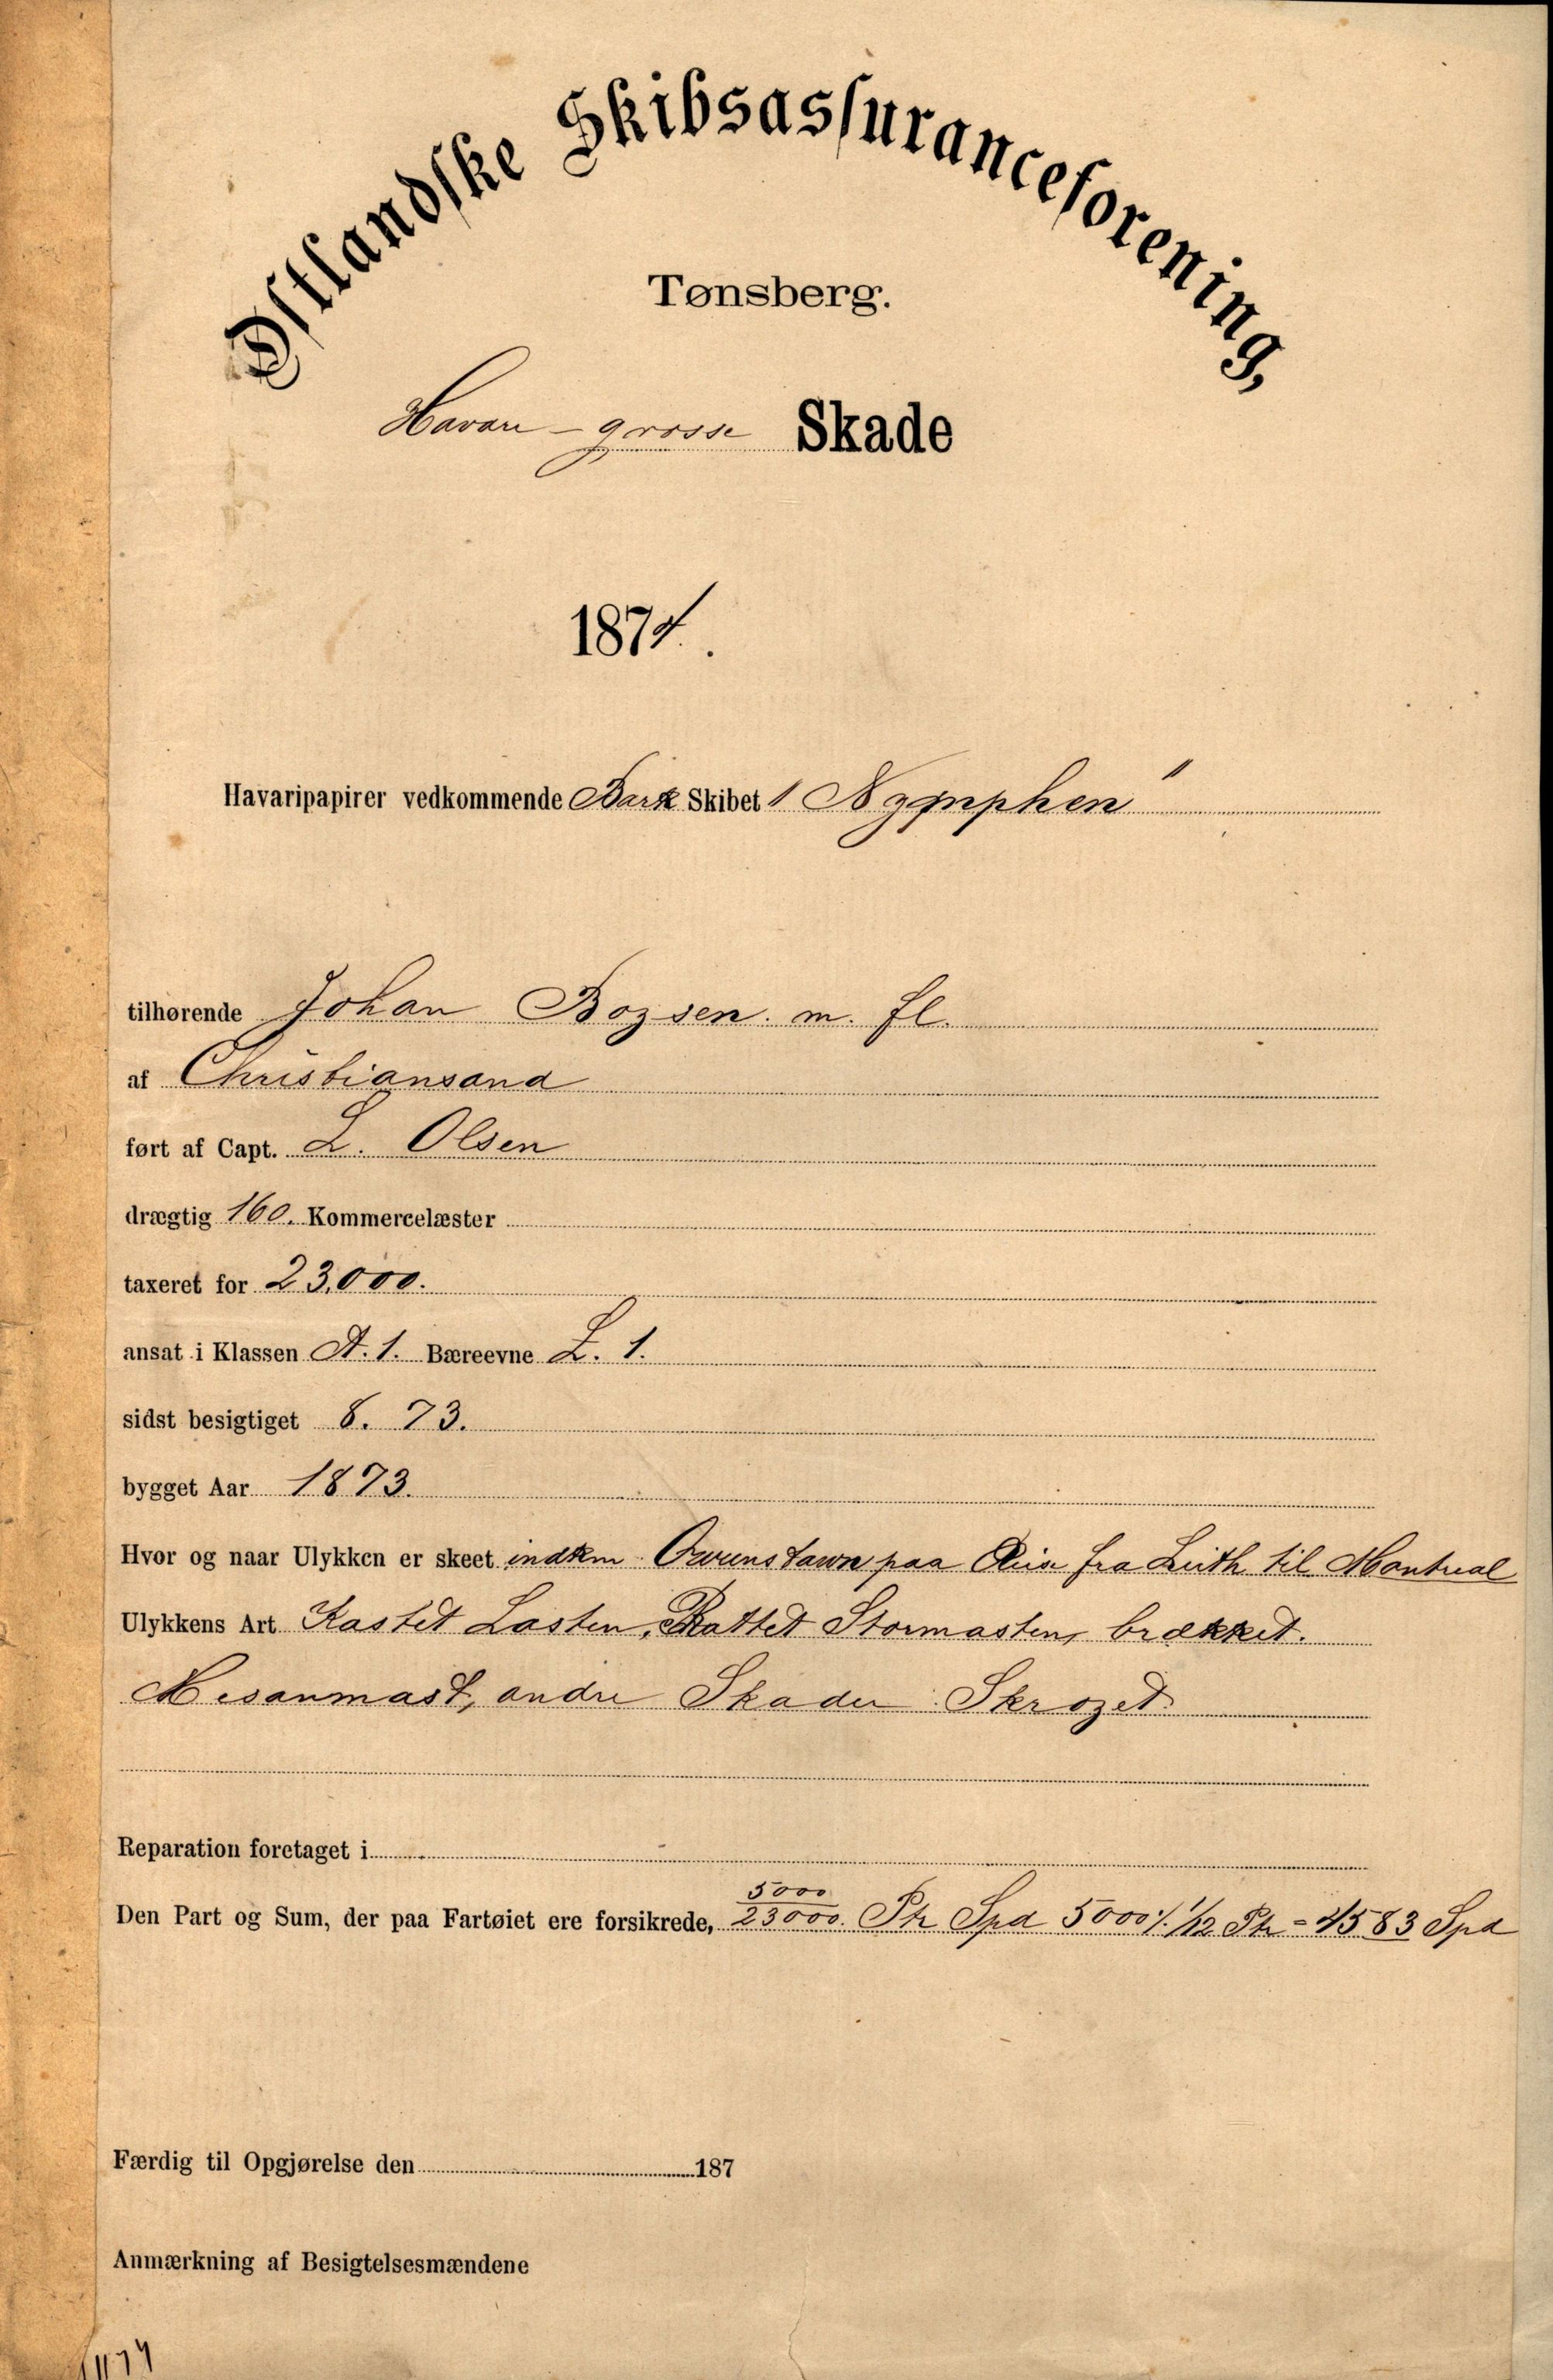 Østlandske Skibsassuranceforening,
Tønsberg.
Havari-grosse Skade
1874.
Havaripapirer vedkommende Bark Skibet "Nymphen"
tilhørende Johan Boysen m. fl.
af Christiansand
ført af Capt. L. Olsen
drægtig 160. Kommercelæster
taxeret for 23,000.
ansat i Klassen A. 1. Bæreevne L. 1.
sidst besigtiget 8. 73.
bygget Aar 1873.
Hvor og naar Ulykken er skeet indkm Qveenstown paa Reise fra Leith til Montreal
Ulykkens Art Kastet Lasten, Rattet Stormasten, brækket.
Mesanmast, andre Skader Skroget.
Reparation foretaget i
Den Part og Sum, der paa Fartøiet ere forsikrede, 5000/23000. Pr Spd 5000 ٪ 1/12 Pr = 4583 Spd
Færdig til Opgjørelse den 187
Anmærkning af Besigtelsesmændene